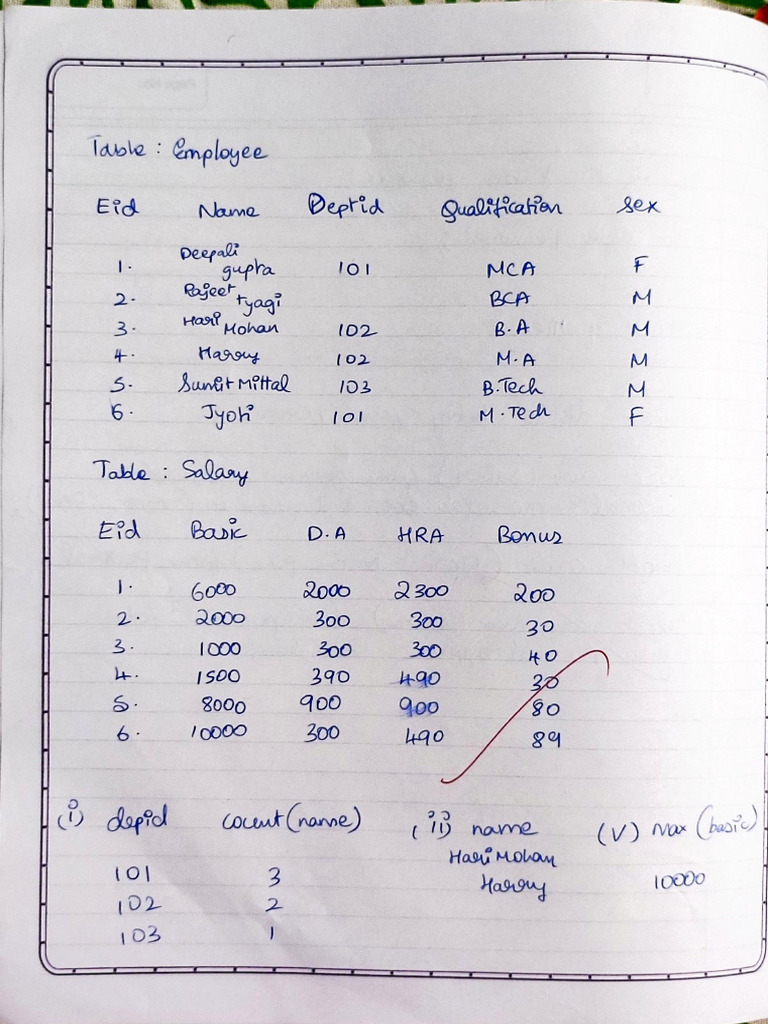 Table : Employee
Eid Name Deptid Qualification Sex
1. Deepali gupta 101 MCA F
2. Rajeet tyagi BCA M
3. Hari Mohan 102 B.A M
4. Harry 102 M.A M
5. Sumit Mittal 103 B.Tech M
6. Jyoti 101 M.Tech F
Table : Salary
Eid Basic D.A HRA Bonus
1. 6000 2000 2300 200
2. 2000 300 300 30
3. 1000 300 300 40
4. 1500 390 490 30
5. 8000 900 900 80
6. 10000 300 490 89
(i) depid count(name) (ii) name (V) Max (basic)
Hari Mohan
101 3 Harry 10000
102 2
103 1